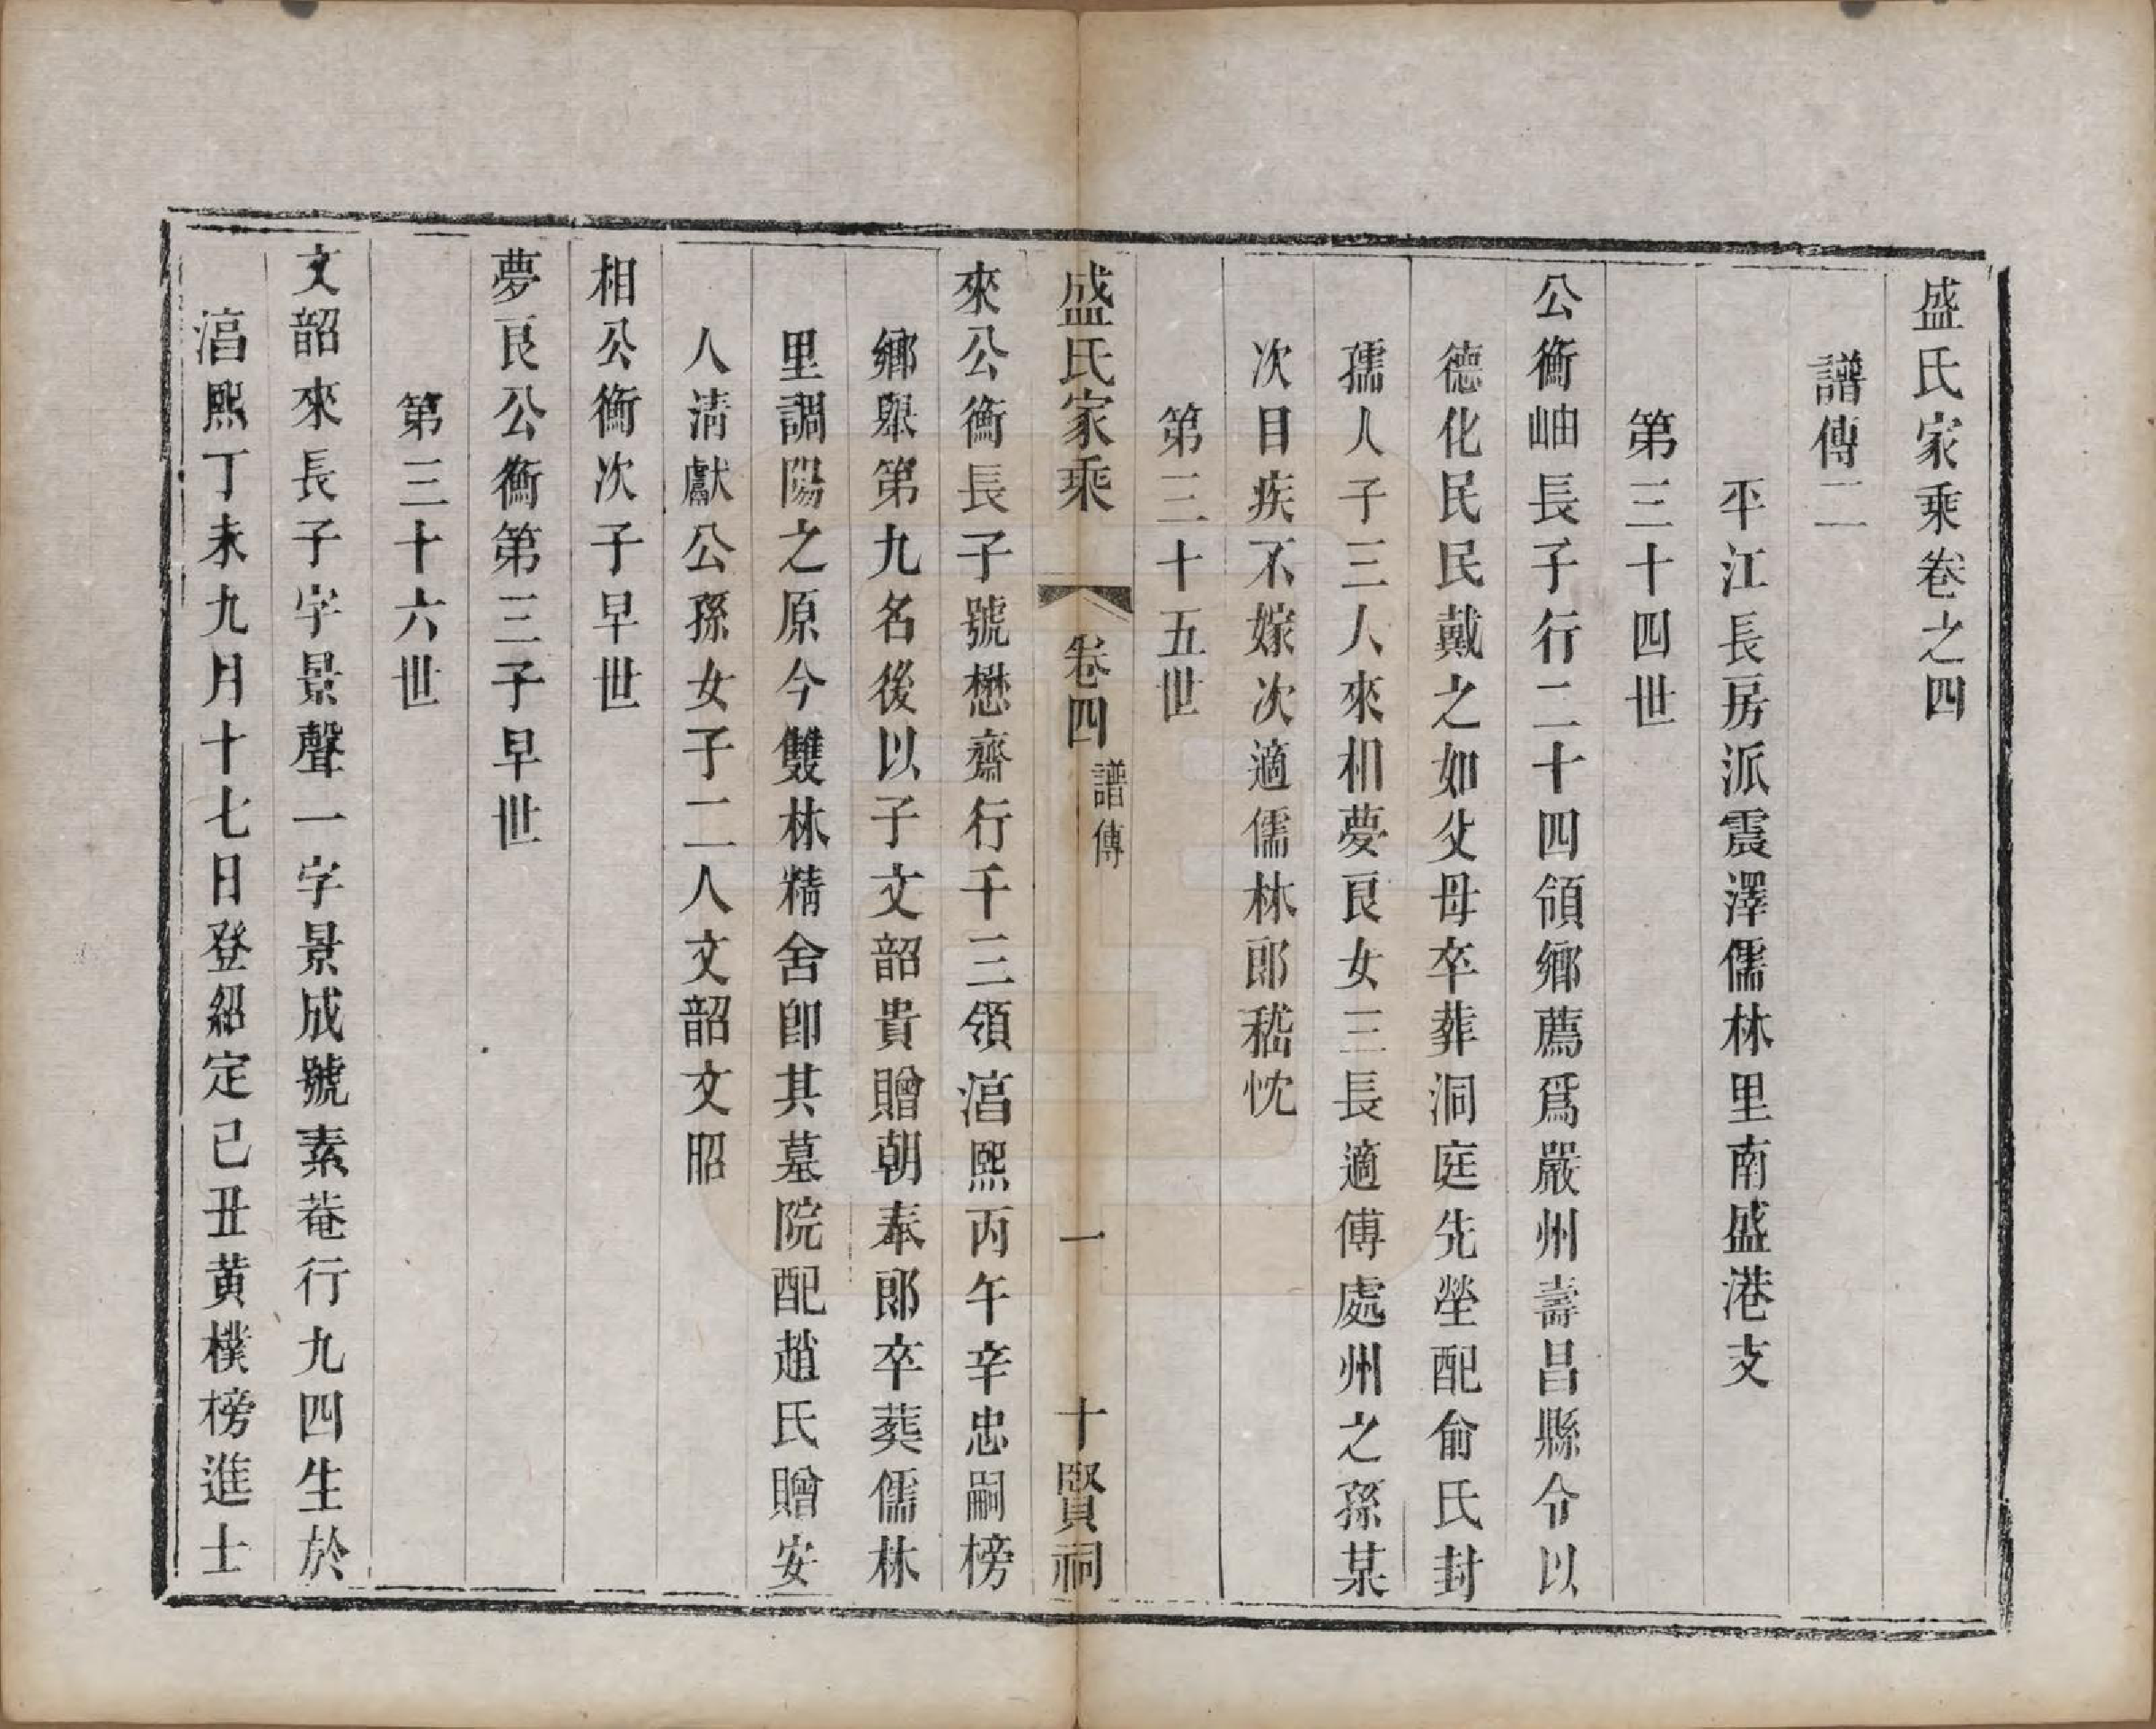 盛氏家乘卷之四
譜傳二
平江長房派震澤儒林里南盛港支
第三十四世
公衡岫長子行二十四領鄉薦爲嚴州壽昌縣令以
德化民民戴之如父母卒葬洞庭先塋配俞氏封
孺人子三人來相夢良女三長適傅處州之孫某
次目疾不嫁次適儒林郎嵇忱
第三十五世
盛氏家乘 卷四 譜傳 一 十賢祠
來公衡長子號懋齋行千三領湻熙丙午辛忠嗣榜
鄉舉第九名後以子文韶貴贈朝奉郎卒葬儒林
里調陽之原今雙林精舍卽其墓院配趙氏贈安
人清獻公孫女子二人文韶文昭
相公衡次子早世
夢良公衡第三子早世
第三十六世
文韶來長子字景聲一字景成號素菴行九四生於
湻熙丁未九月十七日登紹定己丑黃樸榜進士